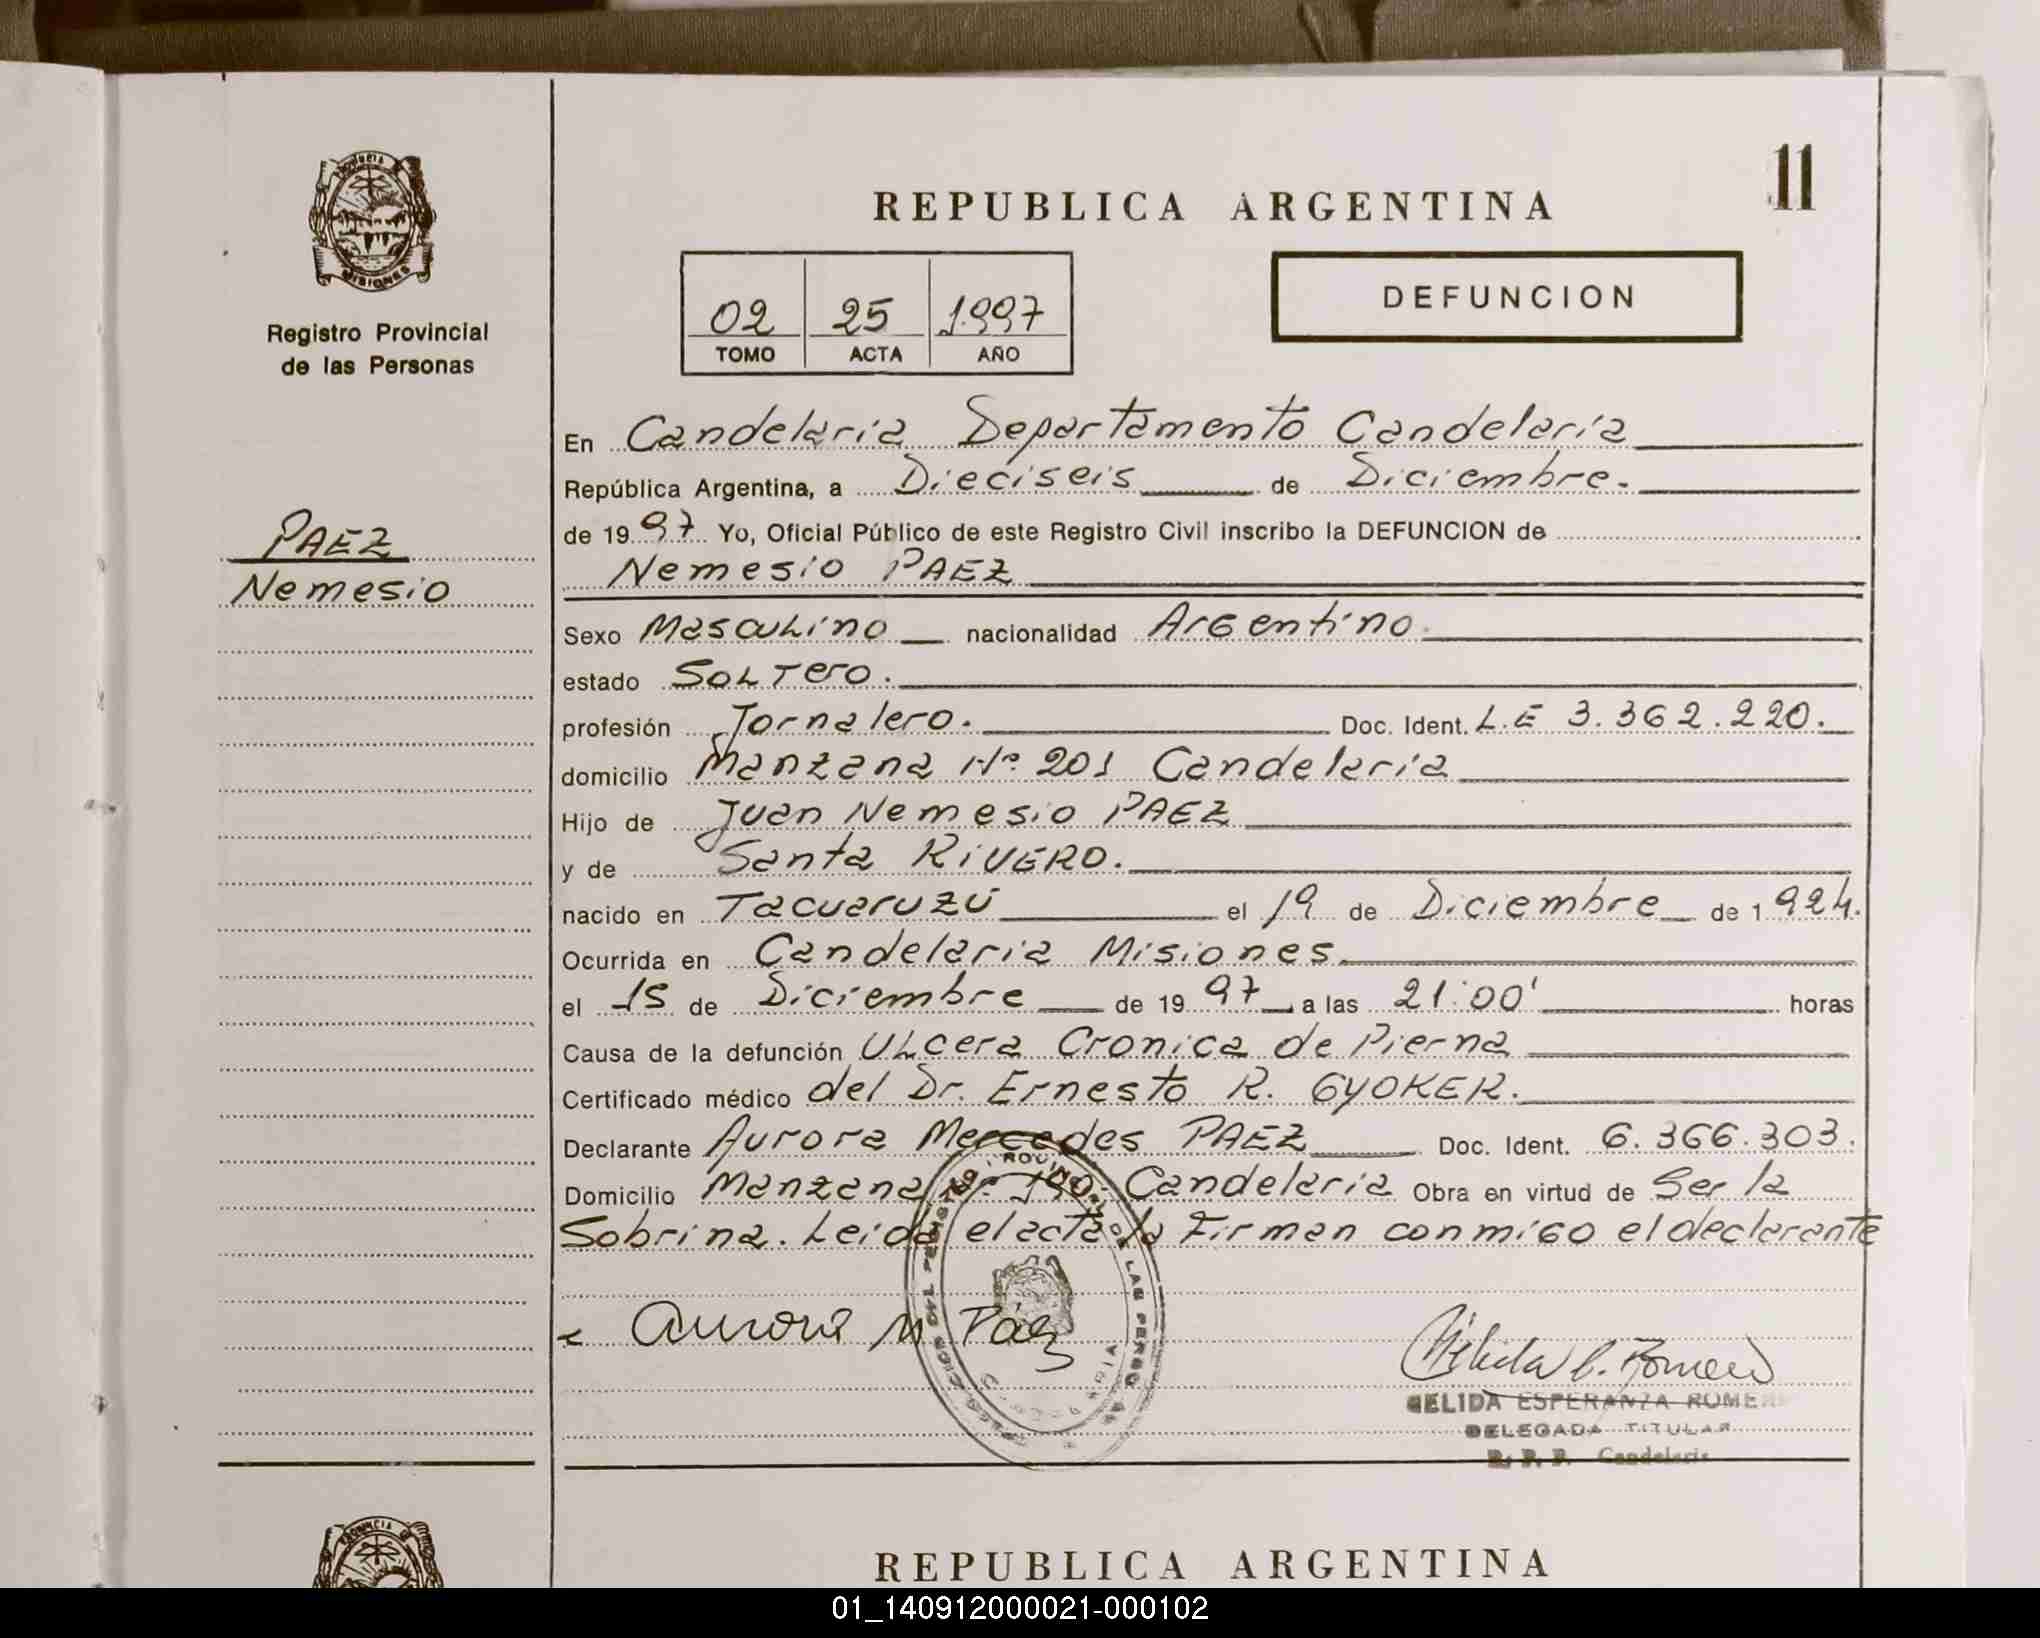 PROVINCIA
MISIONES
Registro Provincial
de las Personas
PAEZ
Nemesio
11
REPUBLICA ARGENTINA
02 25 1997
TOMO ACTA AÑO
DEFUNCION
En Candelaria Departamento Candelaria
República Argentina, a Dieciseis de Diciembre.
de 1997 Yo, Oficial Público de este Registro Civil inscribo la DEFUNCION de
Nemesio PAEZ
Sexo Masculino nacionalidad Argentino.
estado Soltero.
profesión Jornalero. Doc. Ident. L.E 3.362.220.
domicilio Manzana Nº 201 Candelaria
Hijo de Juan Nemesio PAEZ
y de Santa RIVERO.
nacido en Tacuaruzú el 19 de Diciembre de 1924.
Ocurrida en Candelaria Misiones.
el 15 de Diciembre de 1997 a las 21:00' horas
Causa de la defunción Ulcera Cronica de Pierna
Certificado médico del Dr. Ernesto R. GYOKER.
Declarante Aurora Mercedes PAEZ Doc. Ident. 6.366.303.
Domicilio Manzana Candelaria Obra en virtud de Ser la
Sobrina. Leida el acta la Firman conmigo el declarante
Aurora M Páez
Nélida E. Romero
NELIDA ESPERANZA ROMERO
DELEGADA TITULAR
R. P. P. Candelaria
PROVINCIA
REPUBLICA ARGENTINA
01_140912000021-000102